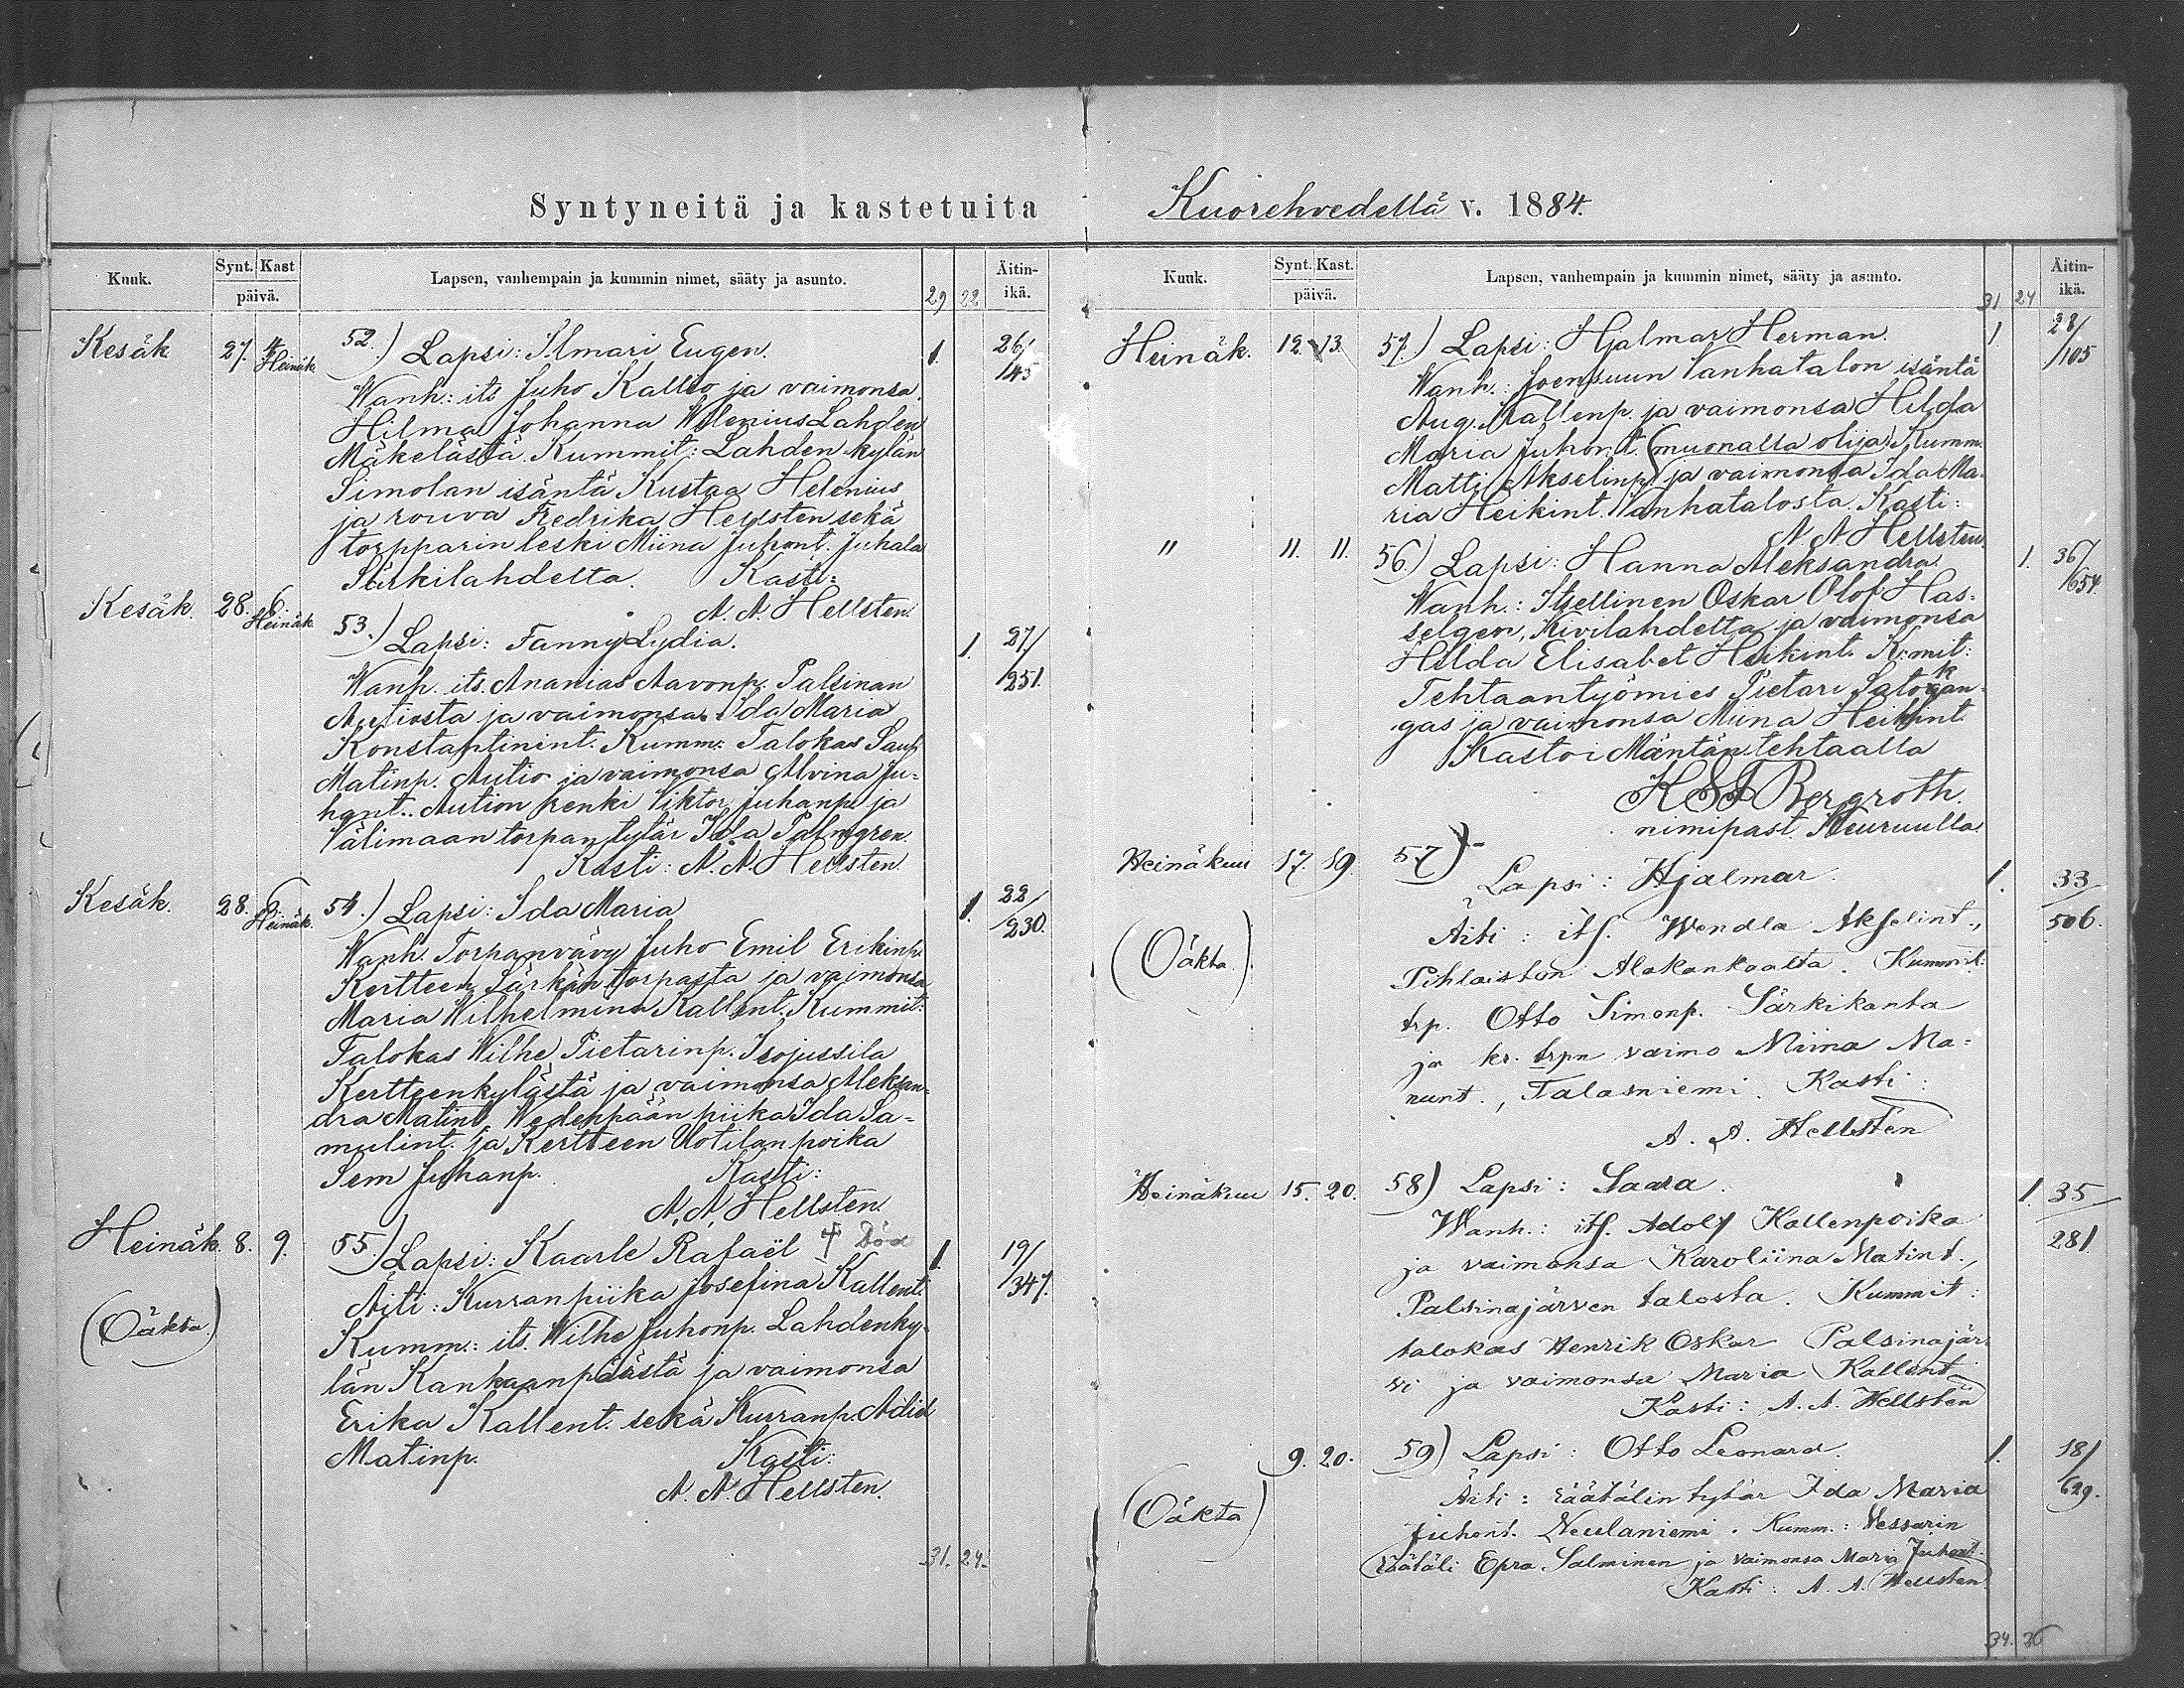 Syntyneitä ja kastetuita
Kuuk. Synt. Kast päivä. Lapsen, vanhempain ja kummin nimet, sääty ja asunto. 29 22 Äitin-ikä.
Kesäk 27. 4. Heinäk 52.) Lapsi: Ilmari Eugen. 1. 26/145
Wanh: its Juho Kallio ja vaimonsa
Hilma Johanna Wilenius Lahden
Mäkelästä. Kummit: Lahden kylän
Simolan isäntä Kustaa Helenius
ja rouva Fredrika Hellsten sekä
torpparin leski Miina Juhont. Juhala
Särkilahdelta. Kasti:
A. A. Hellsten.
Kesäk. 28. 6. Heinäk. 53.) Lapsi: Fanny Lydia. 1. 27/251.
Wanh. its. Ananias Aavonp. Palsinan
Autiosta ja vaimonsa Ida Maria
Konstantinint. Kumm: Talokas
Matinp. Autio ja vaimonsa Alvina Ju-
hant. Aution renki Viktor Juhanp. ja
Välimaan torpan tytär Ida Palmgren.
Kasti: A. A. Hellsten.
Kesäk. 28. 6. Heinäk. 54.) Lapsi: Ida Maria 1. 22/230.
Wanh. Torpanvävy Juho Emil Erikinp.
Kertteen Särkän torpasta ja vaimonsa
Maria Wilhelmina Kallent. Kummit:
Talokas Wilhe Pietarinp. Isojussila
Kertteenkylästä ja vaimonsa Aleksan-
dra Matint. Wedenpään piika Ida Sa-
mulint. ja Kertteen Uotilan poika
Sem Juhanp. Kasti:
A. A. Hellsten.
Heinäk. 8. 9. 55.) Lapsi: Kaarle Rafaël † Död 1. 19/347.
Äiti: Kurran piika Josefina Kallent.
(Oäkta) Kumm.: its. Wilhe Juhonp. Lahdenky-
län Kankaanpäästä ja vaimonsa
Erika Kallent. sekä Kurranp. Adid
Matinp. Kasti:
A. A. Hellsten.
31. 24.
Kuorehvedellä v. 1884.
Kuuk. Synt. Kast. päivä. Lapsen, vanhempain ja kummin nimet, sääty ja asunto. 31 24 Äitin-ikä.
Heinäk. 12. 13. 57.) Lapsi: Hjalmar Herman. 1 28/105
Wanh.: Joensuun Vanhatalon isäntä
Aug. Kallenp. ja vaimonsa Hilda
Maria Juhont. (muonalla olija) Kumm.
Matti Akselinp. ja vaimonsa Ida Ma-
ria Heikint. Wanhatalosta. Kasti:
A A Hellsten.
" 11. 11. 56.) Lapsi: Hanna Aleksandra. 1. 36/654.
Wanh.: Itsellinen Oskar Olof Has-
selgen, Kivilahdelta ja vaimonsa
Hilda Elisabet Heikint. Kmit:
Tehtaantyömies Pietari
gas ja vaimonsa Miina Heikint.
Kastoi Mäntän tehtaalla
Bergroth.
nimipast. Keuruulla
Heinäkuu 17. 19. 57) Lapsi: Hjalmar. 1. 33/506.
Äiti: its. Wendla Akselint.,
(Oäkta.) Pihlaiston Alakankaalta. Kummit:
trp. Otto Simonp. Särkikanta
ja kr. trpn vaimo Miina Ma-
nunt., Talasniemi. Kasti:
A. A. Hellstén
Heinäkuu 15. 20. 58) Lapsi: Saara. 1. 35/281.
Wanh.: its. Adolf Kallenpoika
ja vaimonsa Karoliina Matint.,
Palsinajärven talosta. Kummit:
talokas Henrik Oskar Palsinajär-
vi ja vaimonsa Maria Kallent.
Kasti: A. A. Hellstén
9. 20. 59) Lapsi: Otto Leonard. 1. 18/629.
Äiti: räätälin tytär Ida Maria
(Oäkta) Juhont. Neulaniemi. Kumm.: Vessarin
räätäli Epra Salminen ja vaimonsa Maria Juhont.
Kasti: A. A. Hellstén
34. 26